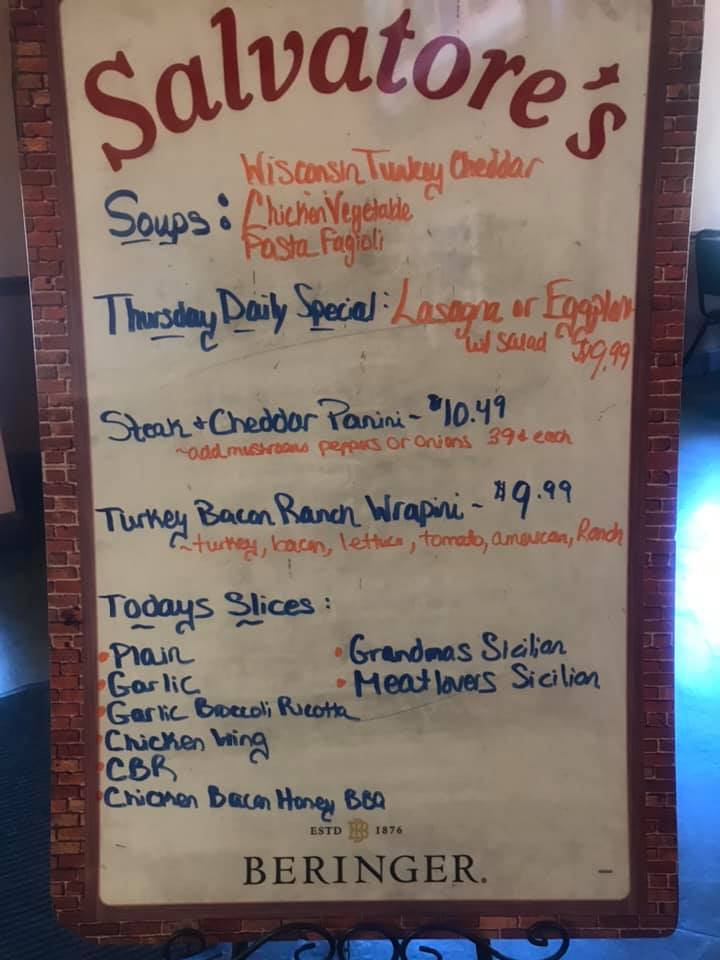 Salvatore's
Wisconsin Turkey Cheddar
Soups: Chicken Vegetable
Pasta Fagioli
Thursday Daily Special: Lasagna or Eggplant
w/ salad $9.99
Steak + Cheddar Panini - $10.49
~add mushrooms peppers or onions 39¢ each
Turkey Bacon Ranch Wrapini - $9.99
~turkey, bacon, lettuce, tomato, american, Ranch
Todays Slices:
• Plain
• Garlic
• Garlic Broccoli Ricotta
• Chicken Wing
• CBR
• Chicken Bacon Honey BBQ
• Grandmas Sicilian
• Meatlovers Sicilian
ESTD B 1876
BERINGER.